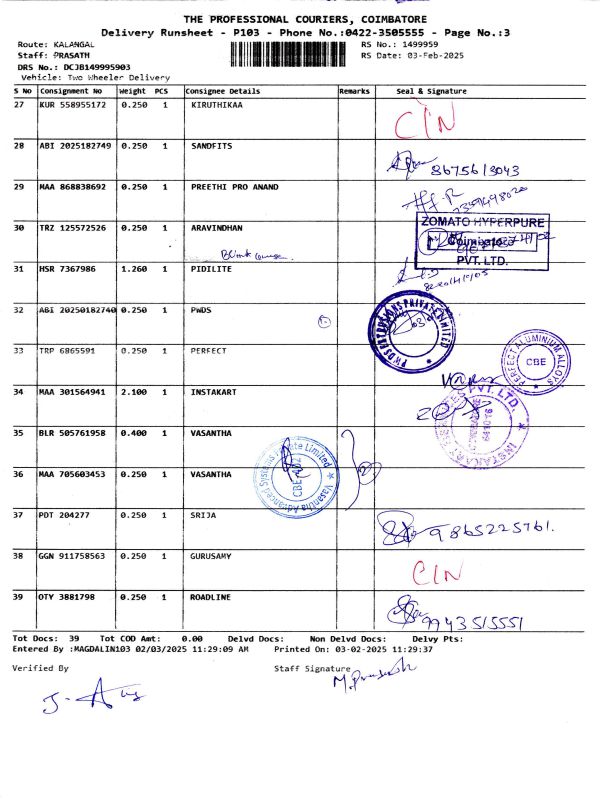 THE PROFESSIONAL COURIERS, COIMBATORE
Delivery Runsheet - P103 - Phone No.:0422-3505555 - Page No.:3
Route: KALANGAL RS No.: 1499959
Staff: PRASATH RS Date: 03-Feb-2025
DRS No.: DCJB149995903
Vehicle: Two Wheeler Delivery
S No Consignment No Weight PCS Consignee Details Remarks Seal & Signature
27 KUR 558955172 0.250 1 KIRUTHIKAA
CIN
28 ABI 2025182749 0.250 1 SANDFITS
8675613043
29 MAA 868838692 0.250 1 PREETHI PRO ANAND
30 TRZ 125572526 0.250 1 ARAVINDHAN
ZOMATO HYPERPURE
Coimbatore
PVT. LTD.
31 HSR 7367986 1.260 1 PIDILITE
32 ABI 20250182740 0.250 1 PWDS
PWDS EXTRUSIONS PRIVATE LIMITED
33 TRP 6865591 0.250 1 PERFECT
PERFECT ALUMINIUM ALLOYS
CBE
34 MAA 301564941 2.100 1 INSTAKART
INSTAKART SERVICES PVT. LTD.
35 BLR 505761958 0.400 1 VASANTHA
Vasantha Advanced Systems Private Limited
CBE
36 MAA 705603453 0.250 1 VASANTHA
37 PDT 204277 0.250 1 SRIJA
9865225761.
38 GGN 911758563 0.250 1 GURUSAMY
CIN
39 OTY 3881798 0.250 1 ROADLINE
9943515551
Tot Docs: 39 Tot COD Amt: 0.00 Delvd Docs: Non Delvd Docs: Delvy Pts:
Entered By :MAGDALIN103 02/03/2025 11:29:09 AM Printed On: 03-02-2025 11:29:37
Verified By Staff Signature
M. Prasath